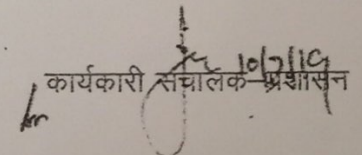 10/7/19
कार्यकारी संचालक-प्रशासन